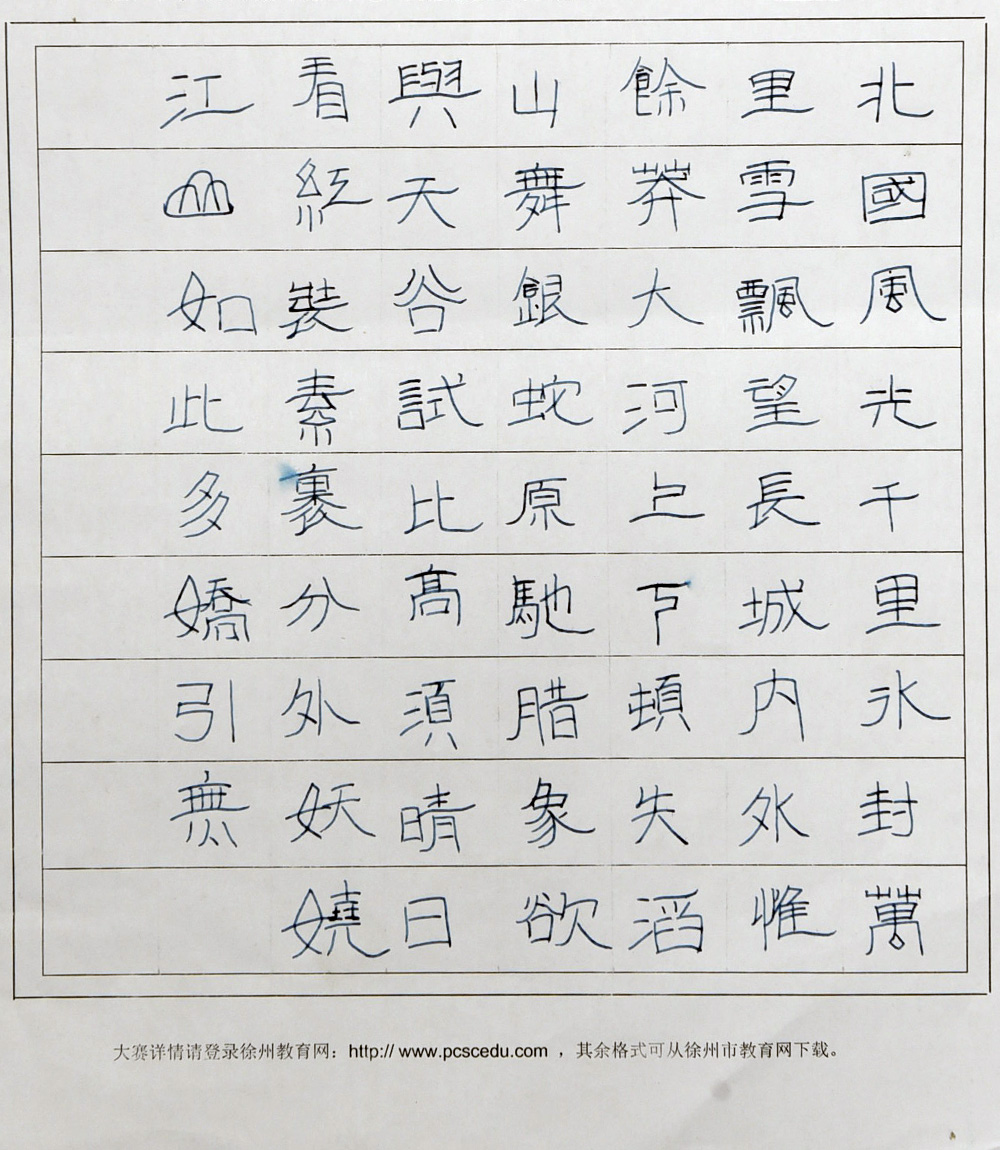 北國風光千里氷封萬
里雪飄望長城内外惟
餘莽大河上下頓失滔
山舞銀蛇原馳腊象欲
與天谷試比髙須晴日
看紅裝素裹分外妖嬈
江山如此多嬌引無
大赛详情请登录徐州教育网：http:// www.pcscedu.com ，其余格式可从徐州市教育网下载。